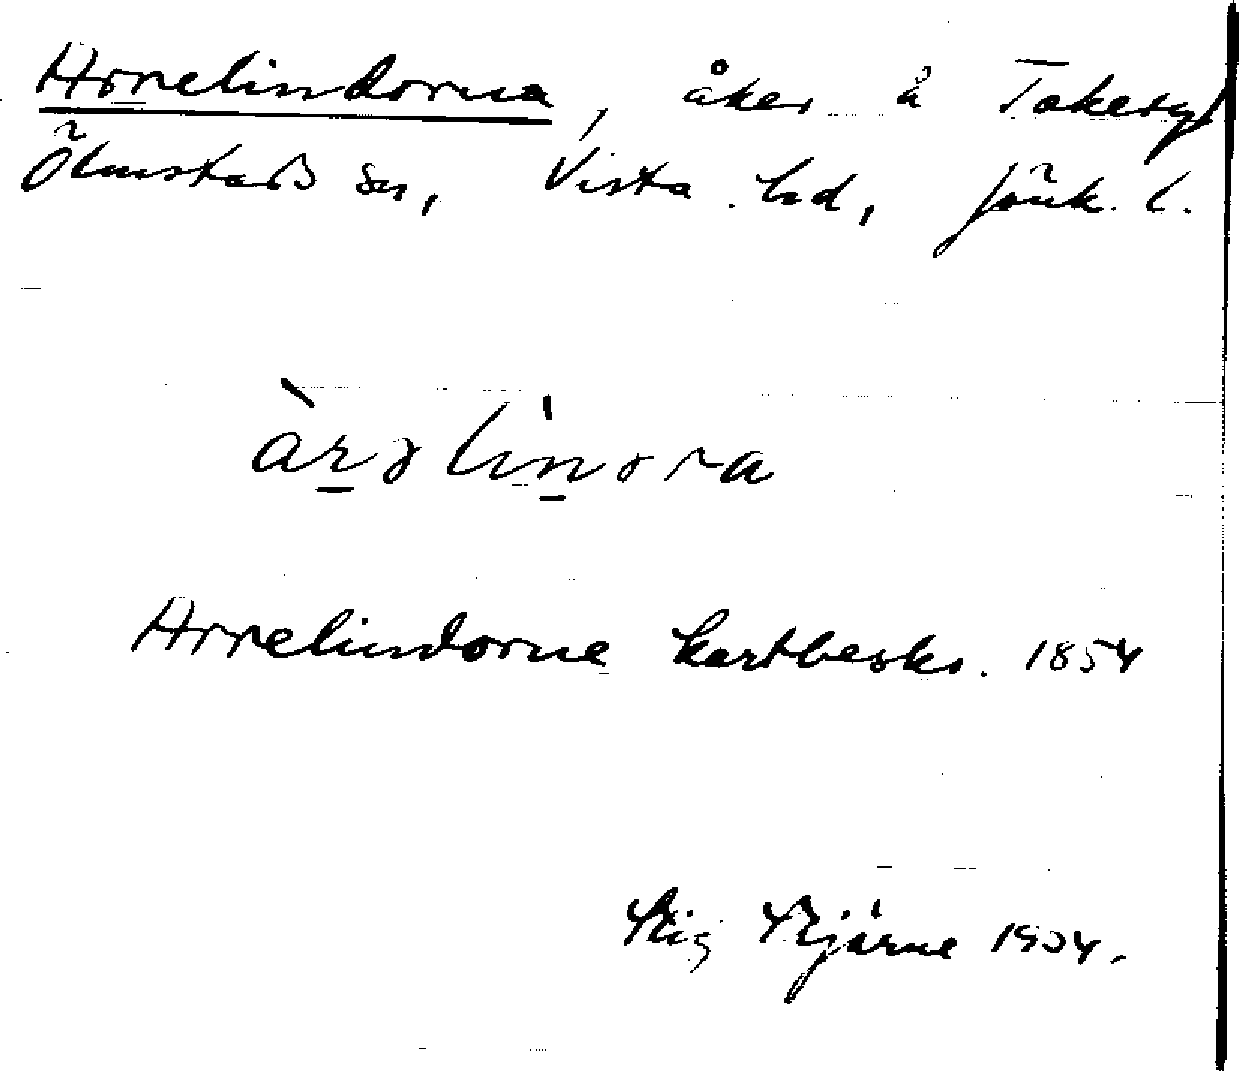 Arrelindorna, åker å Takeryd
Ölmstads sn, Vista hd, Jönk. l.
àrəlinəra
Arrelindorne kartbeskr. 1854
Stig Stjärne 1904.